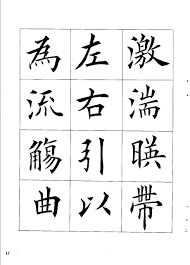 激湍暎帶
左右引以
為流觴曲
17